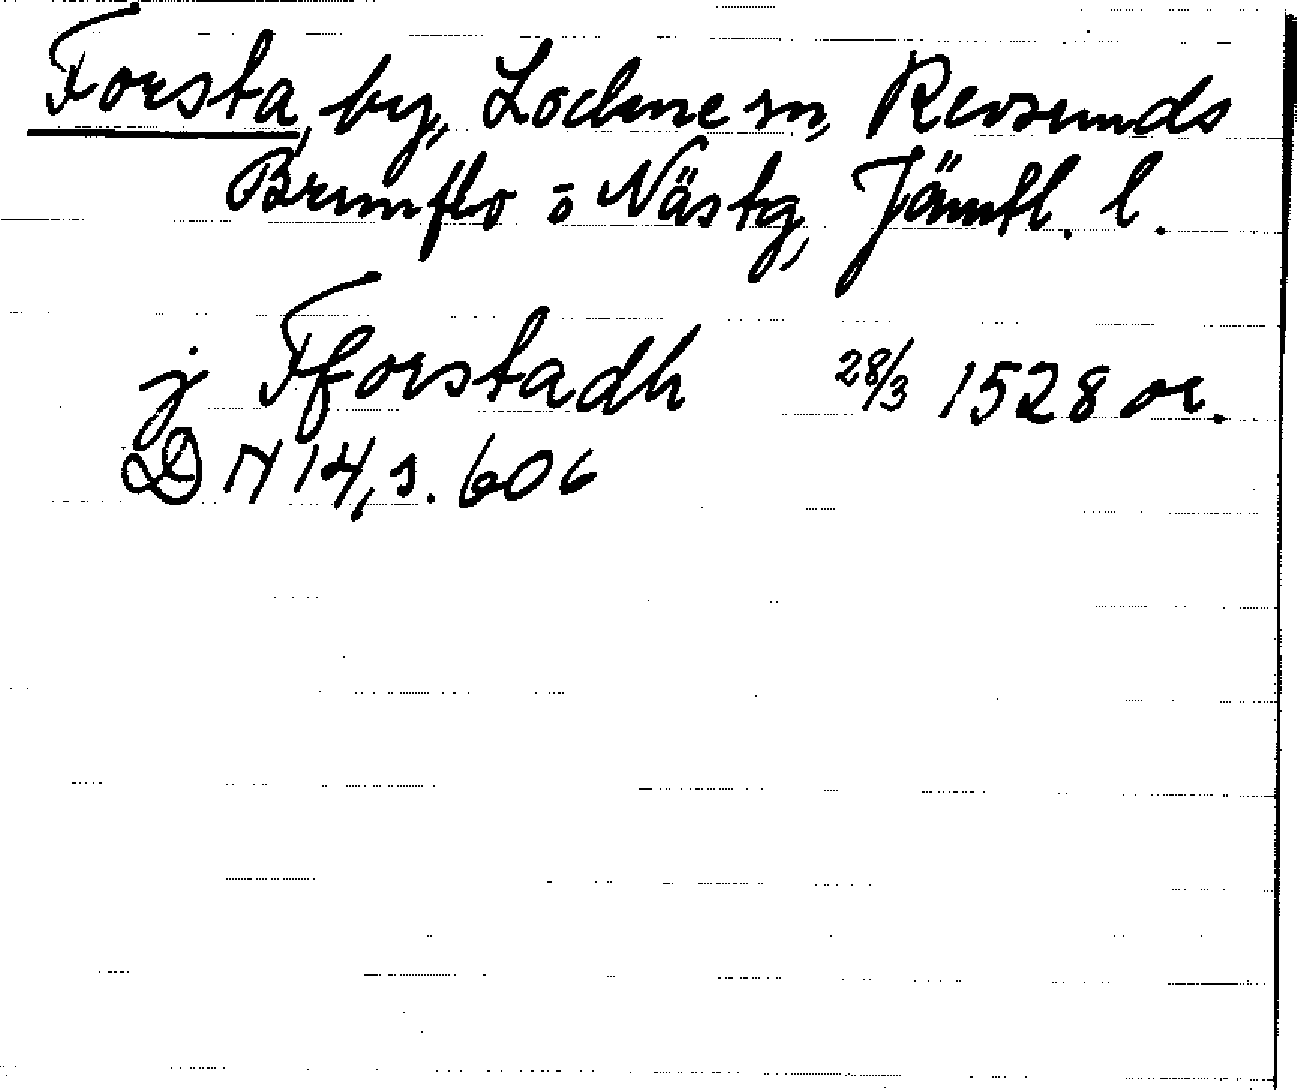 Forsta, by, Lockne sn, Revsunds
Brunflo o Näs tg, Jämtl. l.
j Fforstadh 28/3 1528 or.
DN 14, s. 606